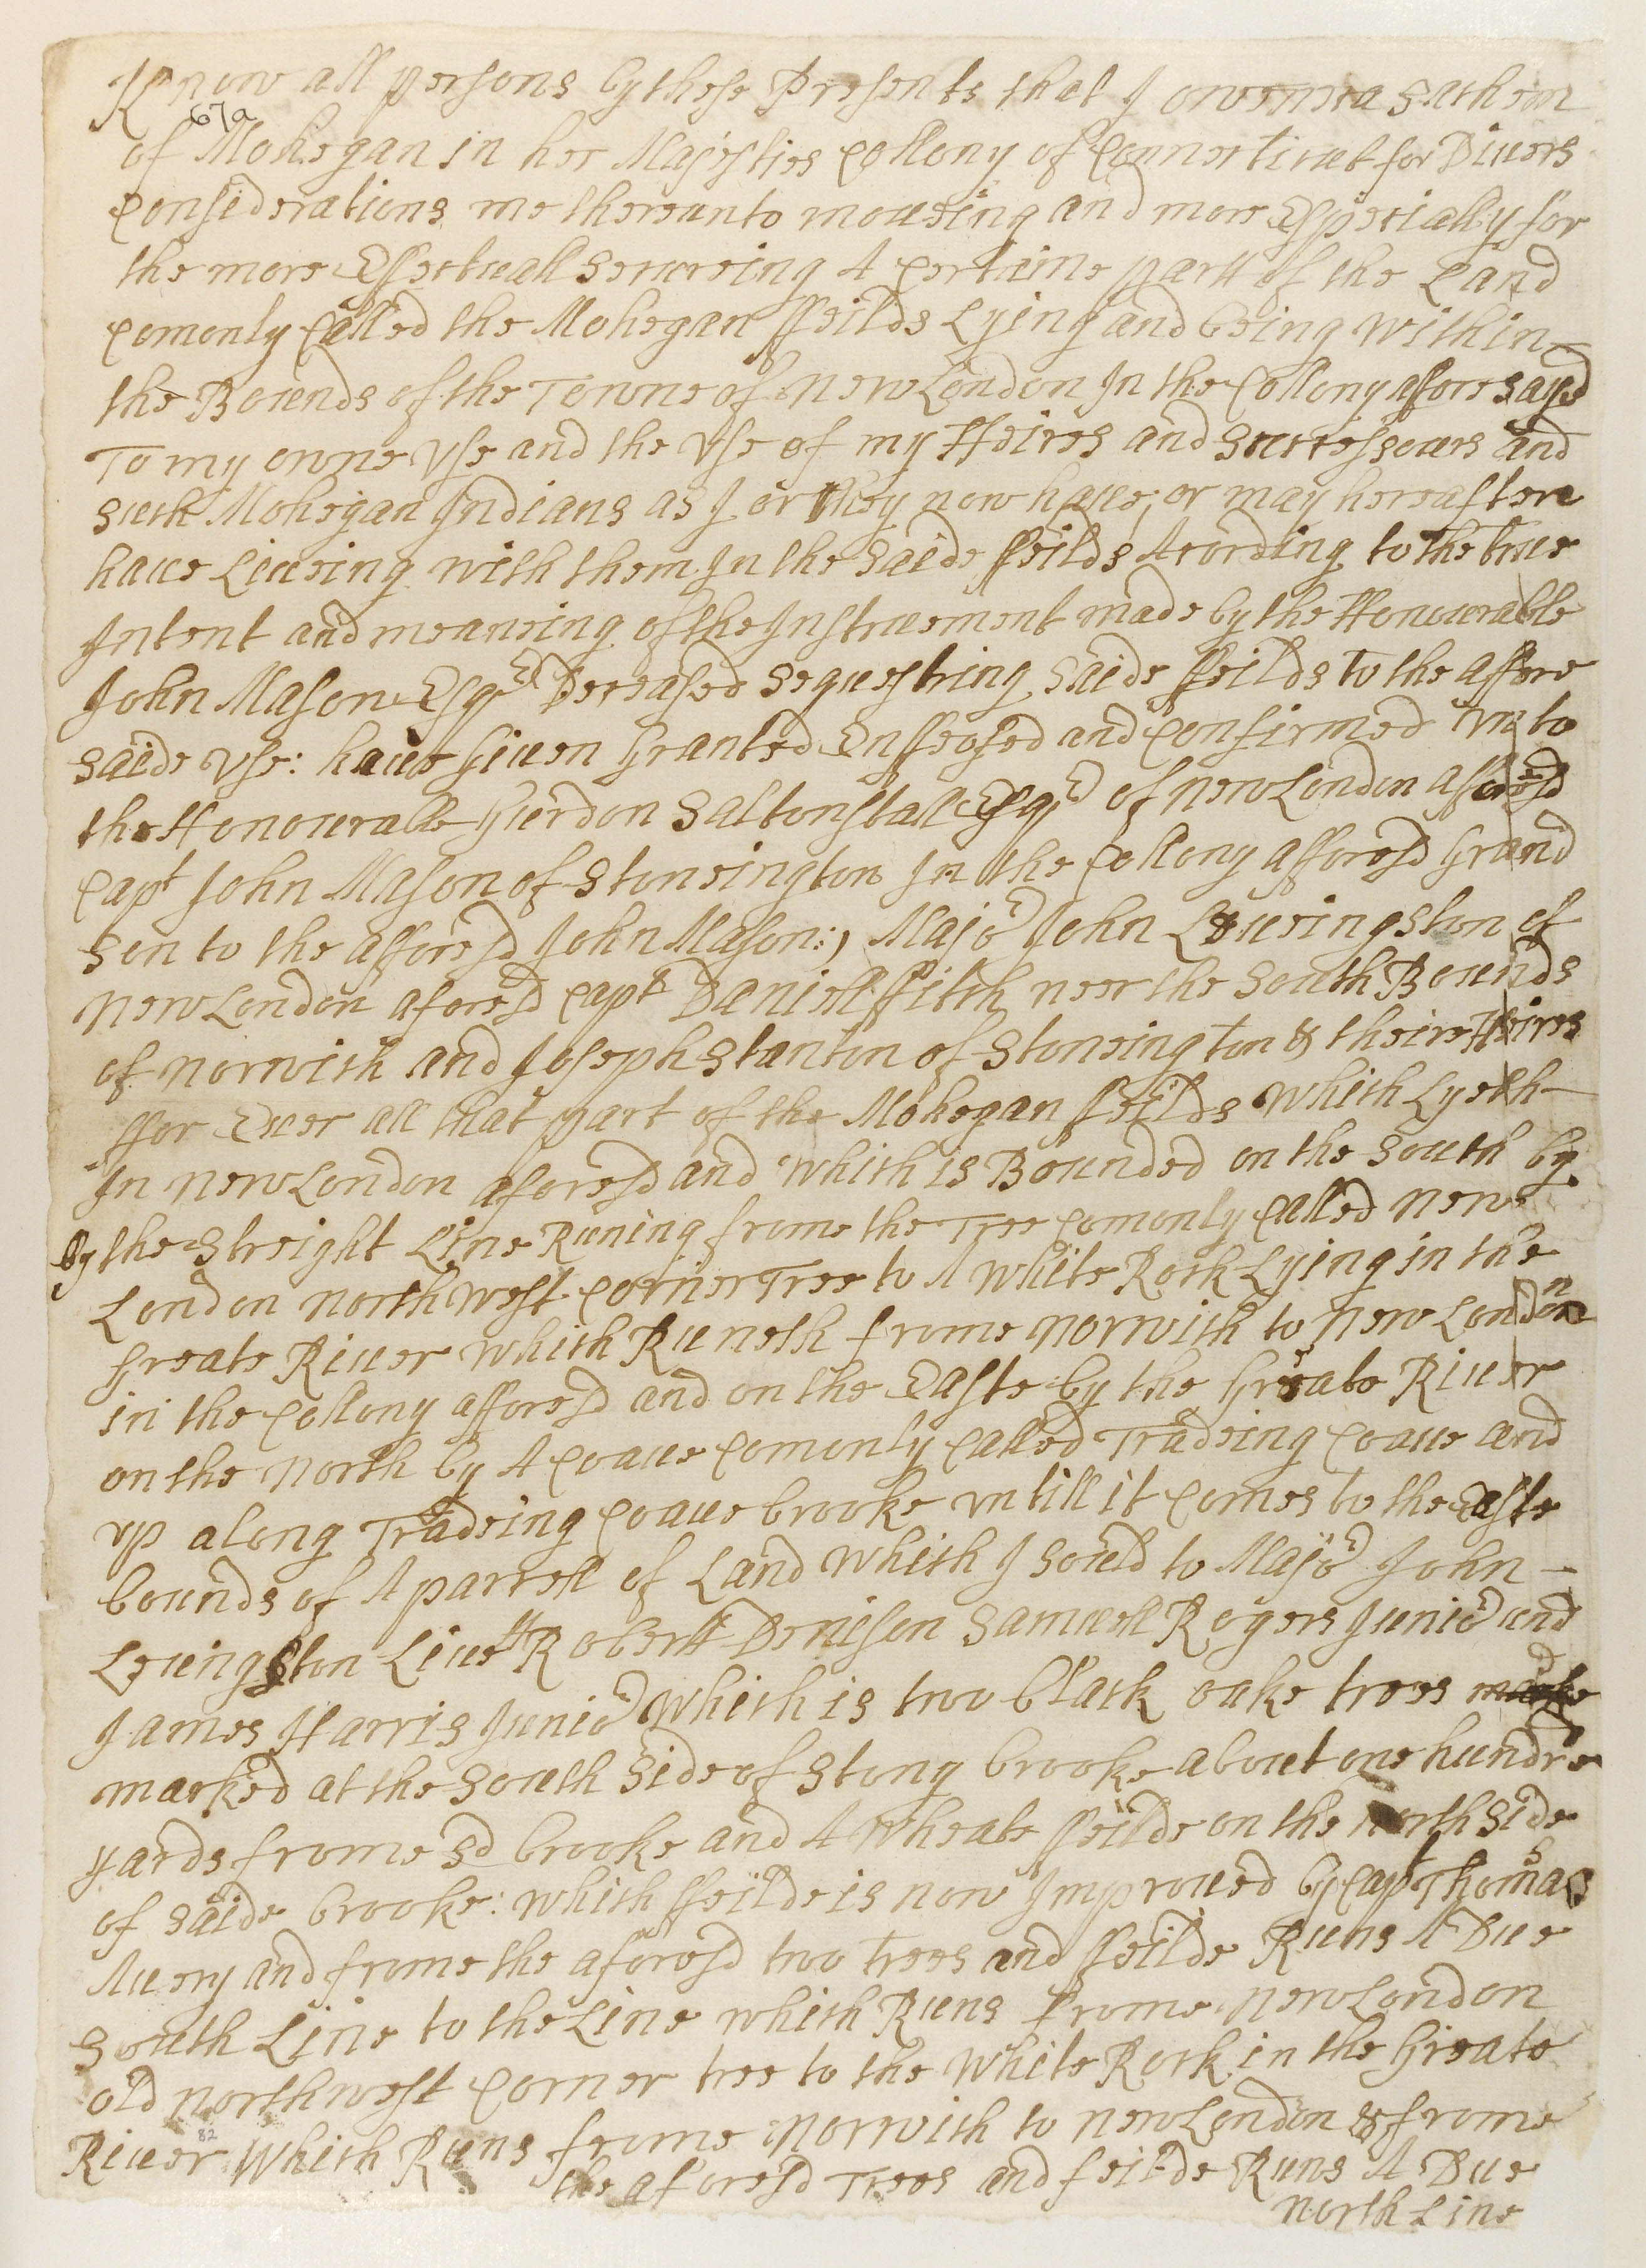 Know all persons by these Presents that I owenneca sachem
67a
of Mohegan in her Majesties Collony of Connecticut for Diuers
Considerations me thereunto moueing and more Especially for
the more Effectuall secureing A Certaine part of the Land
Comonly Called the Mohegan ffeilds Lying and being within
the Bounds of the Towne of New London In the Collony afforesayed
To my owne Vse and the Vse of my Heires and successours and
such Mohegan Indians as I or they now haue, or may hereafter
haue Liueing with them In the saide ffeilds Acording to the true
Intent and meaneing of the Instruement made by the Honourable
John Mason Esqr Deceased sequestring saide ffeilds to the affore
saide Vse: haue Giuen Granted Enffeofed and Confirmed Vnto
the Honourable Guerdon Saltonstall Esqr of New London afforesd
Capt John Mason of Stoneington In the Collony afforesd Grand
Son to the afforesd John Mason:, Major John Leueingston of
New London aforesd Capt Daniell ffitch neer the South Bounds
of Norwich and Joseph Stanton of Stoneington & theire Heires
ffor Euer all that part of the Mohegan ffeilds which Lyeth
In New London aforesd and which is Bounded on the South by
By the Streight Line Runing frome the Tree Comonly Called New
London North west Corner Tree to A white Rock Lying in the
Greate Riuer which Runeth frome Norwich to New London
in the Collony afforesd and on the Easte by the Greate Riuer
on the North by A Coaue Comonly Called Tradeing Coaue and
vp along Tradeing Coaue brooke vntill it Comes to the Easte
bounds of A parcell of Land which I sould to Major John
Leuingston Liuett Robertt Denison Samuell Rogers Junior and
James Harris Junior which is two black oake trees
marked at the South Side of Stony brooke about one hundred
yards frome sd brooke and A wheate ffeilde on the north side
of saide brooke: which ffeilde is now Improued by Capt Thomas
Auery and frome the aforesd two trees and ffeilde Runs A Due
South Line to the Line which Runs frome New London
old northwest Corner tree to the White Rock in the Greate
82
Riuer Which Runs frome Norwich to New London & frome
the aforesd Trees and feilde Runs A Due
North Line